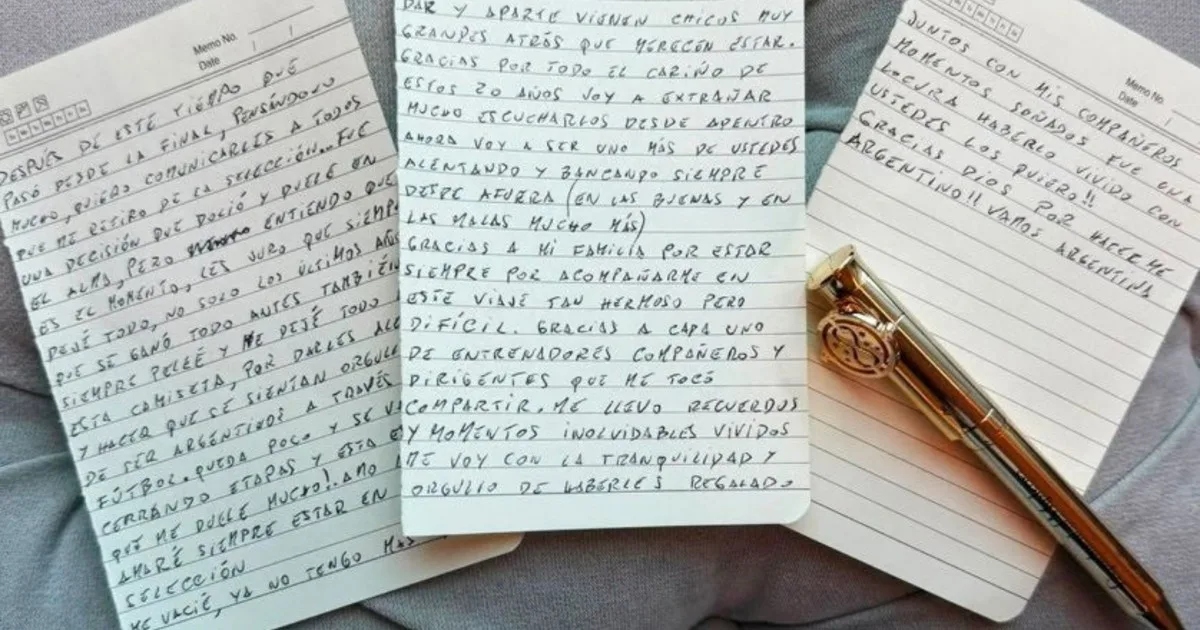 Memo No.
Date / /
DESPUÉS DE ESTE TIEMPO QUE
PASÓ DESDE LA FINAL, PENSÁNDOLO
MUCHO, QUIERO COMUNICARLES A TODOS
QUE ME RETIRO DE LA SELECCIÓN... FUE
UNA DECISIÓN QUE DOLIÓ Y DUELE EN
EL ALMA, PERO ENTIENDO QUE
ES EL MOMENTO, LES JURO QUE SIEMPRE
DEJÉ TODO, NO SOLO LOS ÚLTIMOS AÑOS
QUE SE GANÓ TODO ANTES TAMBIÉN
SIEMPRE PELEÉ Y ME DEJÉ TODO
ESTA CAMISETA, POR DARLES
Y HACER QUE SE SIENTAN
DE SER ARGENTINOS A TRAVÉS
FÚTBOL. QUEDA POCO Y SE
CERRANDO ETAPAS Y ESTA
QUE ME DUELE MUCHO!. AMO
AMARÉ SIEMPRE ESTAR EN
SELECCIÓN
ME VACIÉ, YA NO TENGO MAS
DAR Y APARTE VIENEN CHICOS MUY
GRANDES ATRÁS QUE MERECEN ESTAR.
GRACIAS POR TODO EL CARIÑO DE
ESTOS 20 AÑOS VOY A EXTRAÑAR
MUCHO ESCUCHARLOS DESDE ADENTRO
AHORA VOY A SER UNO MÁS DE USTEDES
ALENTANDO Y BANCANDO SIEMPRE
DESDE AFUERA (EN LAS BUENAS Y EN
LAS MALAS MUCHO MÁS)
GRACIAS A MI FAMILIA POR ESTAR
SIEMPRE POR ACOMPAÑARME EN
ESTE VIAJE TAN HERMOSO PERO
DIFÍCIL. GRACIAS A CADA UNO
DE ENTRENADORES COMPAÑEROS Y
DIRIGENTES QUE ME TOCÓ
COMPARTIR. ME LLEVO RECUERDOS
Y MOMENTOS INOLVIDABLES VIVIDOS
ME VOY CON LA TRANQUILIDAD Y
ORGULLO DE HABERLES REGALADO
Memo No.
Date /
JUNTOS CON MIS COMPAÑEROS
MOMENTOS SOÑADOS FUE UNA
LOCURA HABERLO VIVIDO CON
USTEDES LOS QUIERO!!
GRACIAS DIOS POR HACERME
ARGENTINO!! VAMOS ARGENTINA